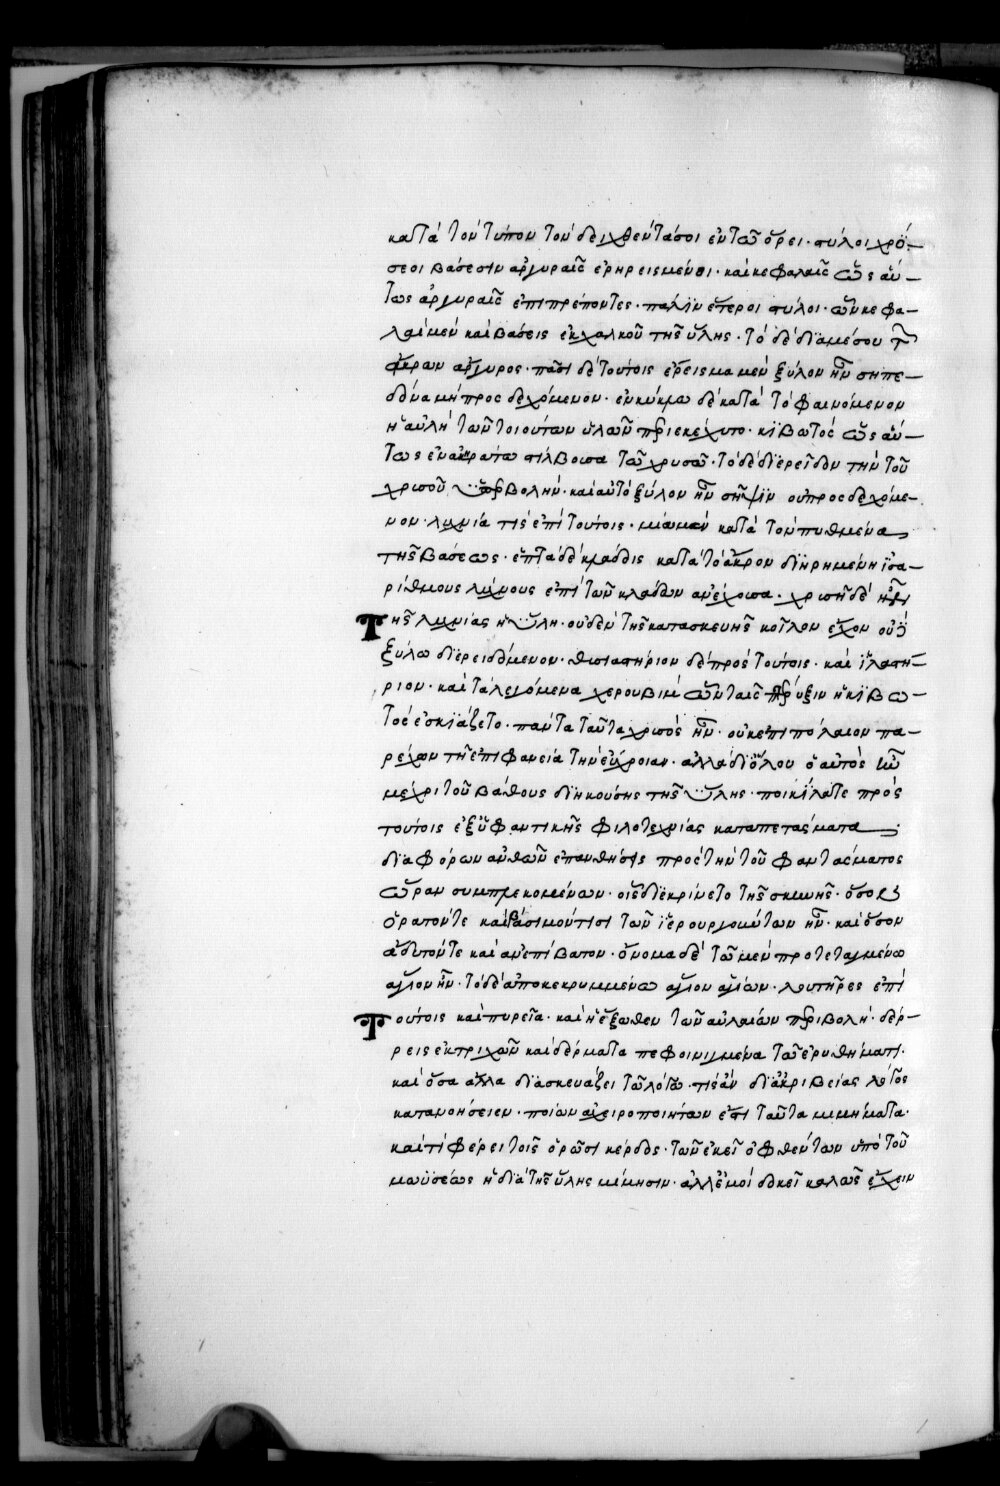 κατὰ τὸν τύπον τὸν δειχθέντά σοι ἐν τῶ ὄρει· στύλοι χρύ-
σεοι βάσεσιν ἀργυραῖς ἐρηρεισμένοι· καὶ κεφαλαῖς ὡσαύ-
τως ἀργυραῖς ἐπιπρέποντες· πάλιν ἕτεροι στύλοι· ὧν κεφα-
λαὶ μὲν καὶ βάσεις ἐκ χαλκοῦ τῆς ὕλης· τὸ δὲ διαμέσου τῶν
ἄκρων ἄργυρος· πᾶσι δὲ τούτοις ἔρεισμα μὲν ξύλον ἦν σηπε-
δόνα μὴ προσδεχόμενον· ἐν κύκλω δὲ κατὰ τὸ φαινόμενον
ἡ αὐλὴ τῶν τοιούτων ὑλῶν περιεκέχυτο· κιβωτὸς ὡσαύ-
τως ἐν ἀκηράτω στίλβουσα τῶ χρυσῶ· τὸ δὲ διερεῖδον τὴν τοῦ
χρυσοῦ περιβολὴν· καὶ αὐτὸ ξύλον ἦν σῆψιν οὐ προσδεχόμε-
νον· λυχνία τίς ἐπὶ τούτοις· μία μὲν κατὰ τὸν πυθμένα
τῆς βάσεως· ἐπτὰ δὲ κλάδοις κατὰ τὸ ἄκρον διηρημένη ἰσα-
ρίθμους λύχνους ἐπὶ τῶν κλάδων ἀνέχουσα· χρυσῆ δὲ ἦν
Τῆς λυχνίας ἡ ὕλη· οὐδὲν τῆς κατασκευῆς κοῖλον ἔχον οὐδὲ
ξύλω διερειδόμενον· θυσιαστήριον δὲ πρὸς τούτοις· καὶ ἱλαστή-
ριον· καὶ τὰ λεγόμενα χερουβὶμ ὧν ταῖς πτέρυξιν ἡ κιβω-
τὸς ἐσκιάζετο· πάντα ταῦτα χρυσὸς ἦν· οὐκ ἐπιπόλαιον πα-
ρέχων τῆ ἐπιφανεία τὴν εὔχροιαν· ἀλλὰ δι' ὅλου ὁ αὐτὸς ὢν
μέχρι τοῦ βάθους διηκούσης τῆς ὕλης· ποικίλά τε πρὸς
τούτοις ἐξ ὑφαντικῆς φιλοτεχνίας καταπετάσματα
διαφόρων ἀνθῶν ἐπανθήσεις πρὸς τὴν τοῦ φαντάσματος
ὥραν συμπλεκομένων· οἷς διεκρίνετο τῆς σκηνῆς· ὅσον
ὁρατόν τε καὶ βάσιμόν τισι τῶν ἱερουργούντων ἦν· καὶ ὅσον
ἄδυτόν τε καὶ ἀνεπίβατον· ὄνομα δὲ τῶ μὲν προτεταγμένω
ἅγιον ἦν· τὸ δὲ ἀποκεκρυμμένω ἅγιον ἁγίων· λουτῆρες ἐπὶ
Τούτοις καὶ πυρεῖα· καὶ ἡ ἔξωθεν τῶν αὐλαιῶν περιβολή· δέρ-
ρεις ἐκ τριχῶν καὶ δέρματα πεφοινιγμένα τῶ ἐρυθήματι·
καὶ ὅσα ἄλλα διασκευάζει τῶ λόγω· τίς ἂν δι' ἀκριβείας λόγος
κατανοήσειεν· ποίων ἀχειροποιήτων ἐστὶ ταῦτα μιμήματα·
καὶ τί φέρει τοῖς ὁρῶσι κέρδος· τῶν ἐκεῖ ὀφθέντων ὑπὸ τοῦ
μωϋσέως ἡ διὰ τῆς ὕλης μίμησιν· ἀλλ' ἐμοὶ δοκεῖ καλῶς ἔχειν